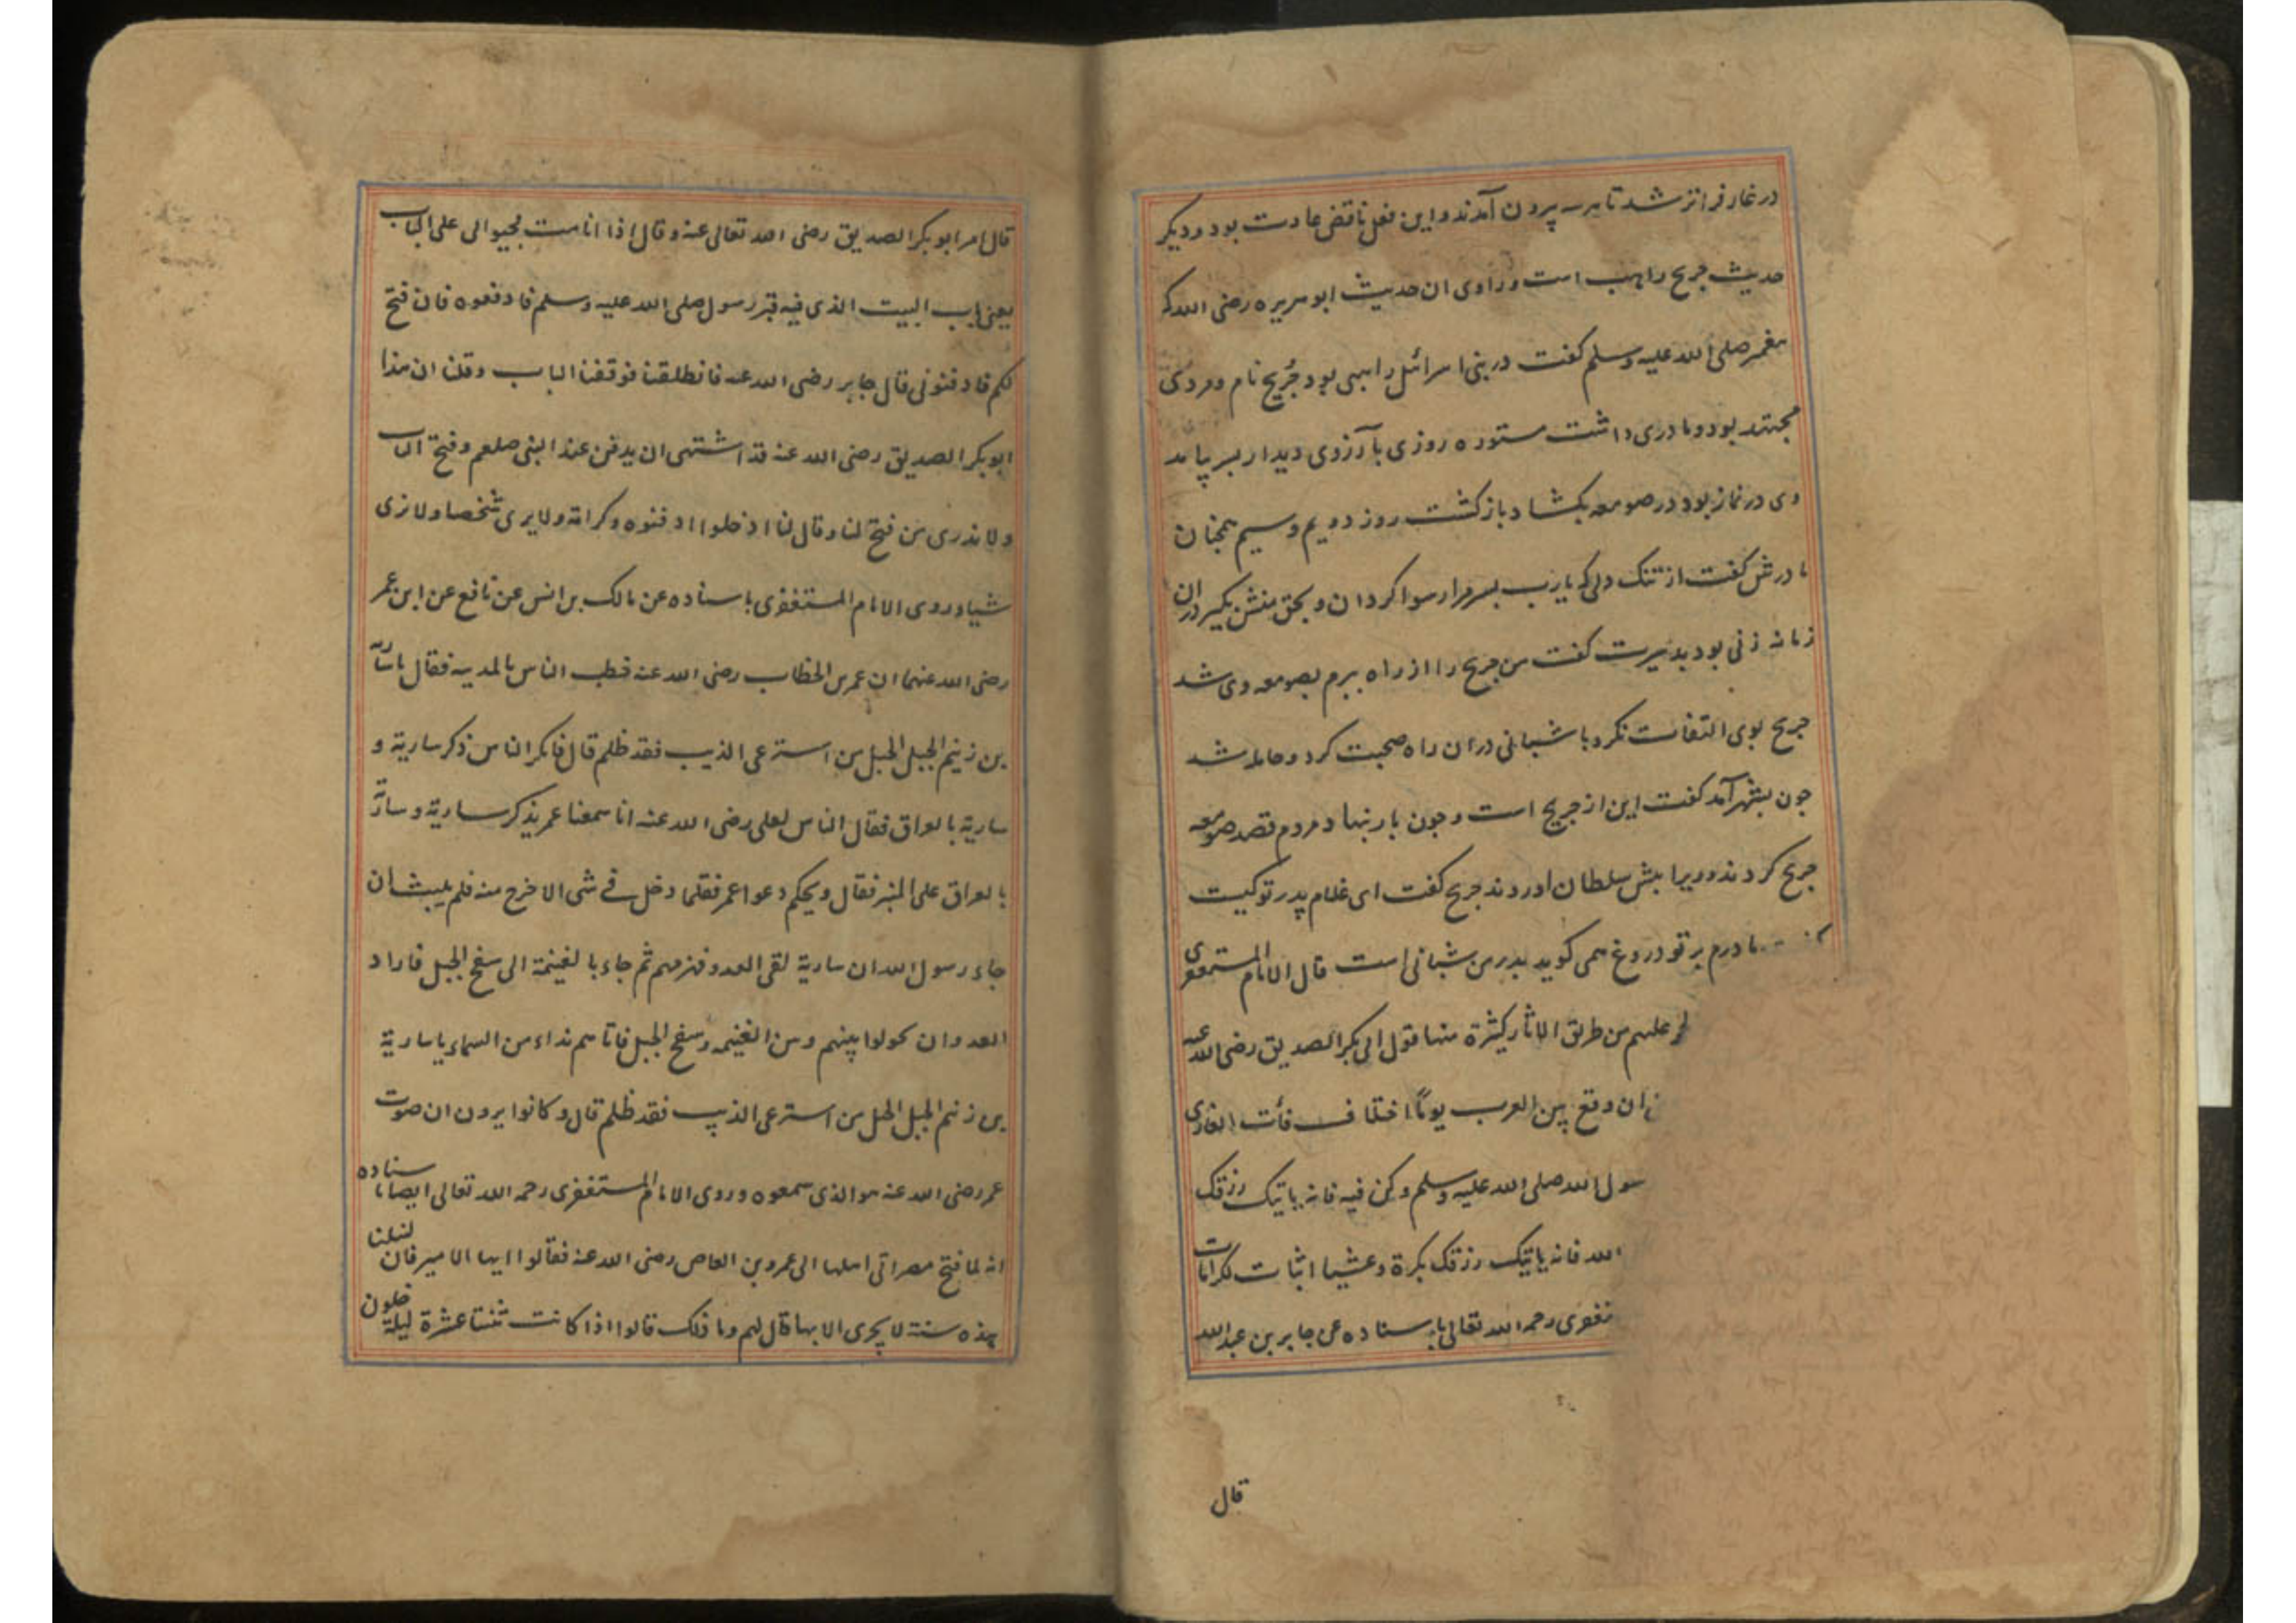 در غار فراتر شد تا هرسه بیرون آمدند و این فعل ناقض عادت بود و دیگر
حدیث جریح راهب است و راوی ان حدیث ابوهریره رضی الله که
پیغمبر صلی الله علیه وسلم کفت در بنی اسرائل راهبی بود جُریح نام و مردی
مجتهد بود و مادری داشت مستوره روزی بآرزوی دیدار پسر بیامد
وی در نماز بود در صومعه بکشاد باز کشت روز دویم و سیم همچنان
مادرش کفت از تنک دلی که یارب پسر مرا رسوا کردان و بحق منش بکیر دران
زمانه زنی بود بدسیرت کفت من جریح را از راه ببرم بصومعه وی شد
جریح بوی التفات نکرد با شبانی دران راه صحبت کرد و حامله شد
چون بشهر آمد کفت این از جریح است و چون بار بنهاد مردم قصد صومعه
جریح کردند و ویرا پیش سلطان اوردند جریح کفت ای غلام پدر تو کیست
مادرم بر تو دروغ همی کوید پدر من شبانی است قال الامام المستغفری
علیهم من طریق الاثار کثیرة منها قول ابی بکر الصدیق رضی الله عنه
ان وقع بین العرب یوماً اختلاف فأت الغار الذی
سول الله صلی الله علیه وسلم وکن فیه فانه یاتیک رزقک
الله فانه یاتیک رزقک بکرة وعشیا اثبات لکرامات
غفری رحمه الله تعالی باسناده عن جابر بن عبدالله
قال
قال امر ابوبکر الصدیق رضی الله تعالی عنه وقال اذا انا مت فجیئوا لی علی الباب
یعنی باب البیت الذی فیه قبر رسول صلی الله علیه وسلم فادفعوه فان فتح
لکم فادفنونی قال جابر رضی الله عنه فانطلقنا فوقفنا الباب وقلنا ان هذا
ابوبکر الصدیق رضی الله عنه قد اشتهی ان یدفن عند النبی صلعم وفتح الباب
ولا ندری من فتح لنا وقال لنا ادخلوا ادفنوه وکرامة ولا یری شخصا ولا نری
شیا وروی الامام المستغفری باسناده عن مالک بن انس عن نافع عن ابن عمر
رضی الله عنهما ان عمر بن الخطاب رضی الله عنه خطب الناس بالمدینه فقال یا ساریة
بن زنیم الجبل الجبل من استرعی الذیب فقد ظلم قال فانکر الناس ذکر ساریة و
ساریة بالعراق فقال الناس لعلی رضی الله عنه انا سمعنا عمر یذکر ساریة وساریة
بالعراق علی المنبر فقال ویحکم دعوا عمر فقلما دخل فی شی الا خرج منه فلم یلبث ان
جاء رسول الله ان ساریة لقی العدو فهزمهم ثم جاء بالغنیمة الی سفح الجبل فاراد
العدو ان یحولوا بینهم وبین الغنیمه وسفح الجبل فاتاهم نداء من السماء یا ساریة
بن زنیم الجبل الجبل من استرعی الذیب فقد ظلم قال وکانوا یرون ان صوت
عمر رضی الله عنه هو الذی سمعوه وروی الامام المستغفری رحمه الله تعالی ایضا باسناده
انه لما فتح مصر اتی اهلها الی عمرو بن العاص رضی الله عنه فقالوا ایها الامیر فان لنیلنا
هذه سنة لا یجری الا بها قال لهم وما ذلک قالوا اذا کانت ثنتا عشرة لیلة خلون